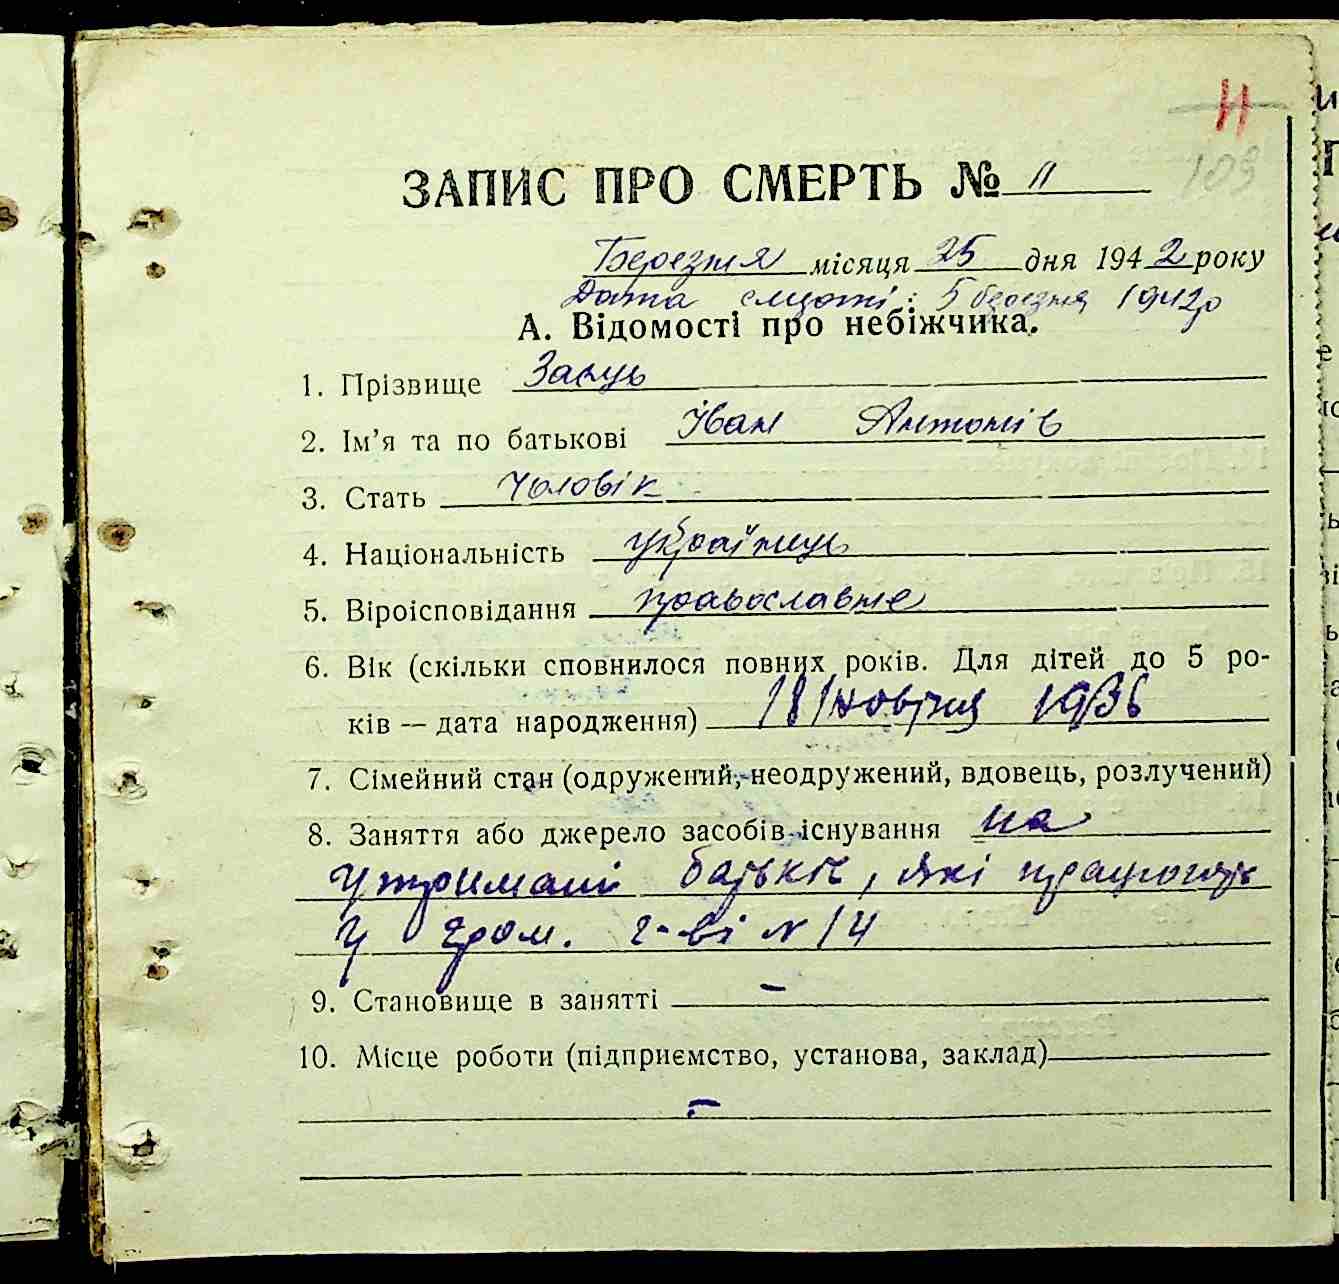 11
109
ЗАПИС ПРО СМЕРТЬ № 11
Березня місяця 25 дня 1942 року
Дата смерті: 5 березня 1942р
А. Відомості про небіжчика.
1. Прізвище Заєць
2. Ім'я та по батькові Іван Антонів
3. Стать Чоловік
4. Національність українець
5. Віроісповідання православне
6. Вік (скільки сповнилося повних років. Для дітей до 5 ро-
ків — дата народження) 18 жовтня 1936
7. Сімейний стан (одружений, неодружений, вдовець, розлучений)
8. Заняття або джерело засобів існування на
утримані батьків, які працюють
у гром. г-ві № 14
9. Становище в занятті –
10. Місце роботи (підприємство, установа, заклад)
–